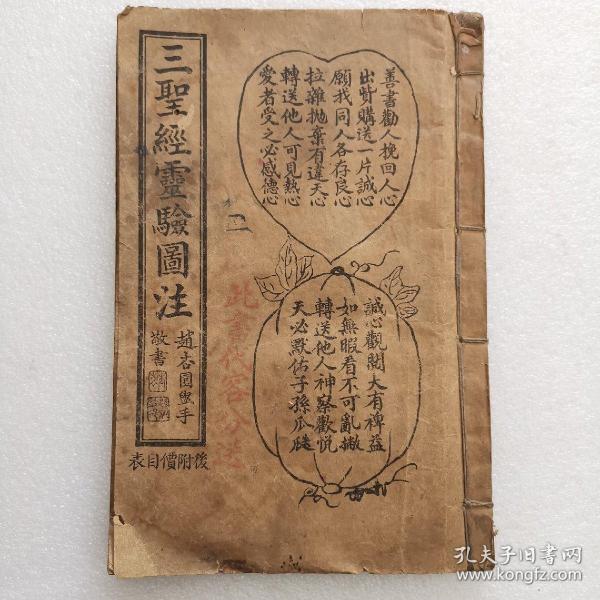 三聖經靈驗圖注
趙杏園盥手
敬書
後附價目表
善書勸人挽回人心
出貲購送一片誠心
願我同人各存良心
拉雜拋棄有違天心
轉送他人可見熱心
愛者受之必感德心
二
此書代客分送
誠心觀閱大有裨益
如無暇看不可亂撇
轉送他人神察歡悅
天必默佑子孫瓜瓞
孔夫子旧书网
www.kongfz.com